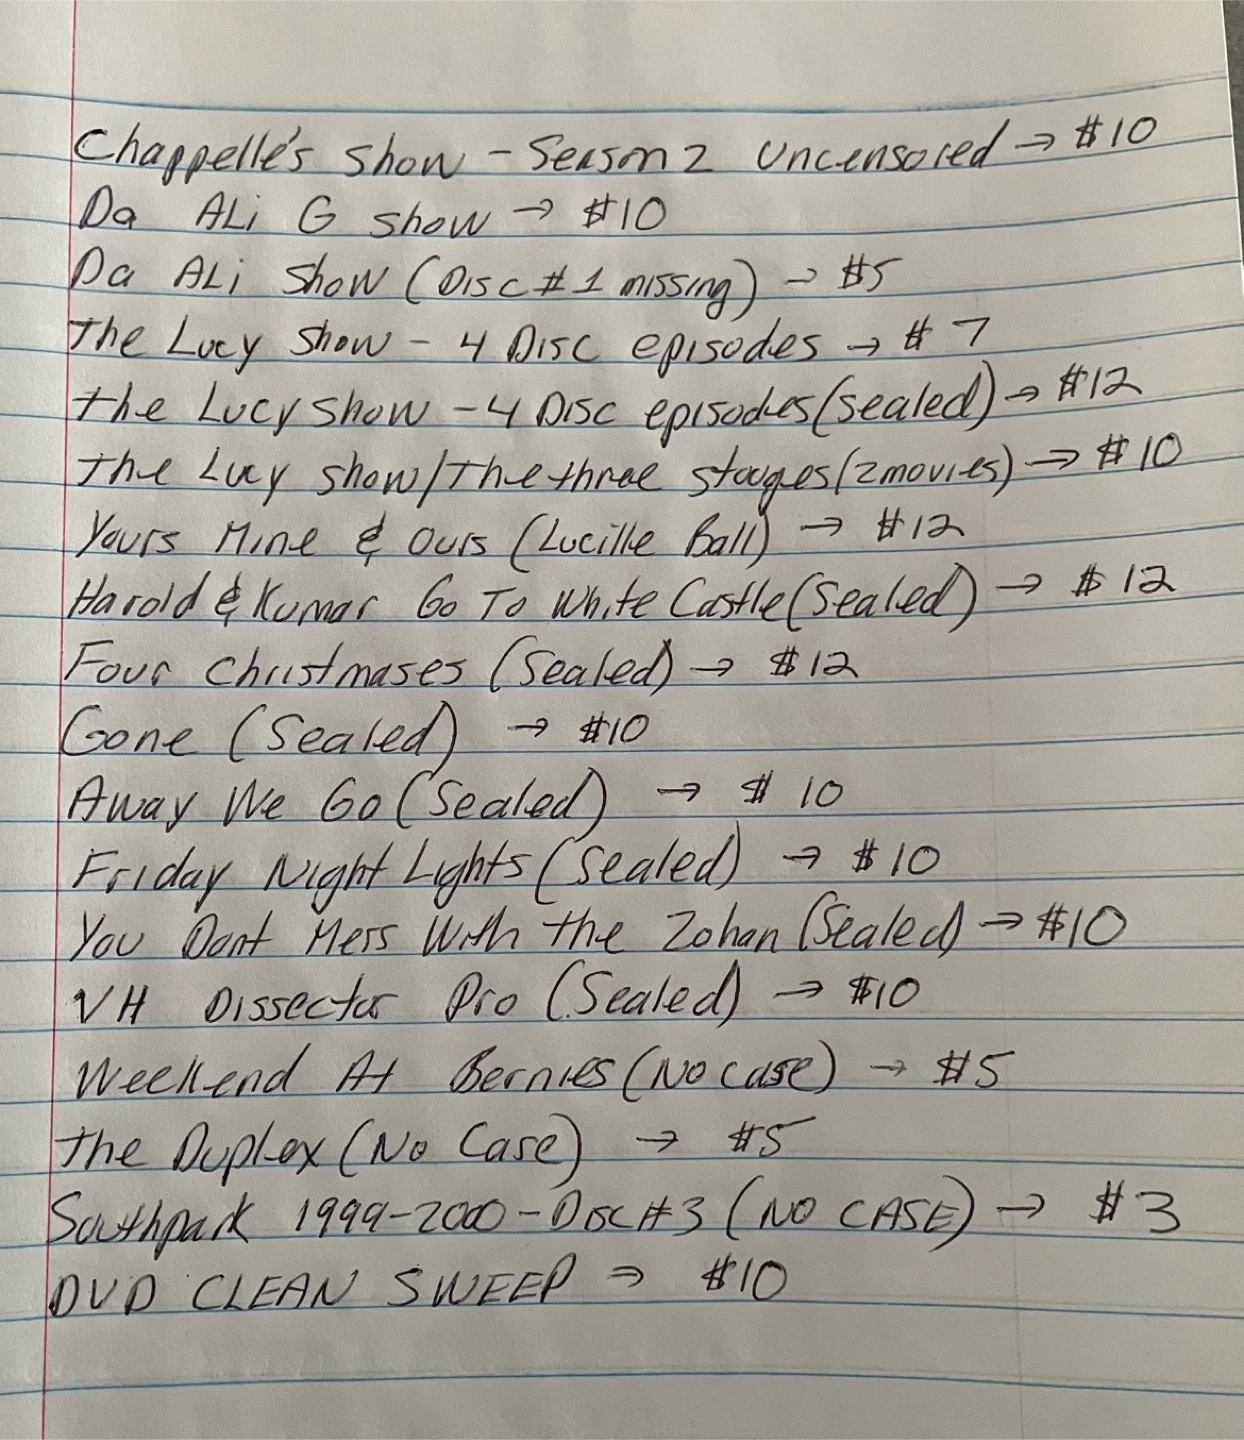 Chappelle's Show - Season 2 Uncensored → $10
Da ALi G Show → $10
Da ALi Show (Disc #1 missing) → $5
The Lucy Show - 4 Disc episodes → $7
The Lucy Show - 4 Disc episodes (Sealed) → $12
The Lucy Show/The three stooges (2 movies) → $10
Yours Mine & Ours (Lucille Ball) → $12
Harold & Kumar Go To White Castle (Sealed) → $12
Four Christmases (Sealed) → $12
Gone (Sealed) → $10
Away We Go (Sealed) → $10
Friday Night Lights (Sealed) → $10
You Dont Mess With the Zohan (Sealed) → $10
VH Dissector Pro (Sealed) → $10
Weekend At Bernies (No case) → $5
The Duplex (No Case) → $5
Southpark 1999-2000 - Disc #3 (NO CASE) → $3
DVD CLEAN SWEEP → $10